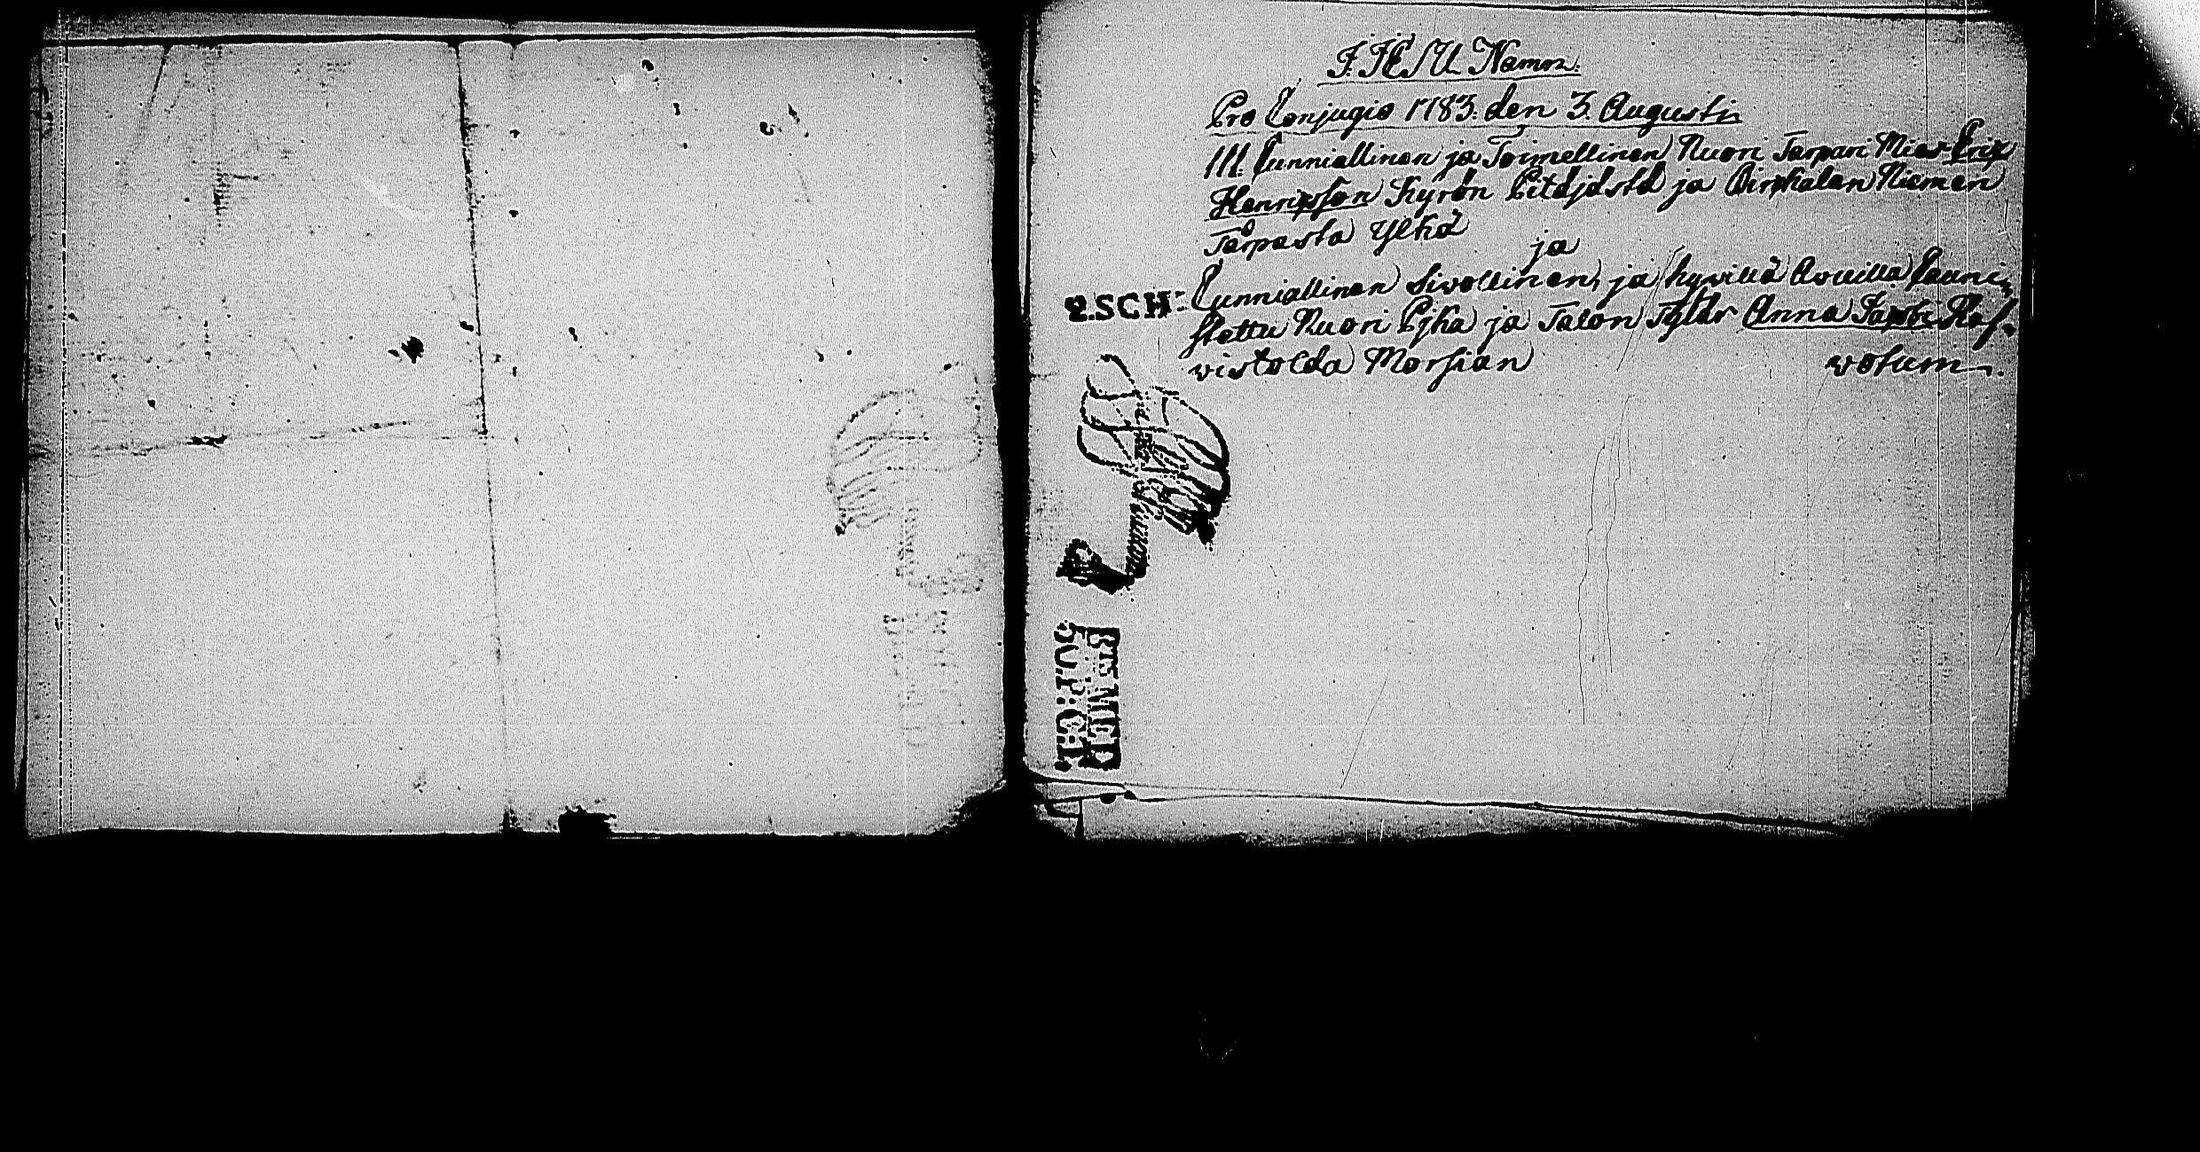 I. JESU Namn.
Pro Conjugio 1783. den 3. Augusti
III. Cunniallinen ja Toimellinen Nuori Tarpari Mies Erix
Henrixson Kyrön Pitäjästä ja Birkalan Niemen
Torpasta Ylkä
ja
Cunniallinen Siwollinen, ja hywillä Awuilla Cauni-
stettu Nuori Pjka ja Talon Tytär Anna Jacobi
wistolda Morsian
votum.
2.SCH: